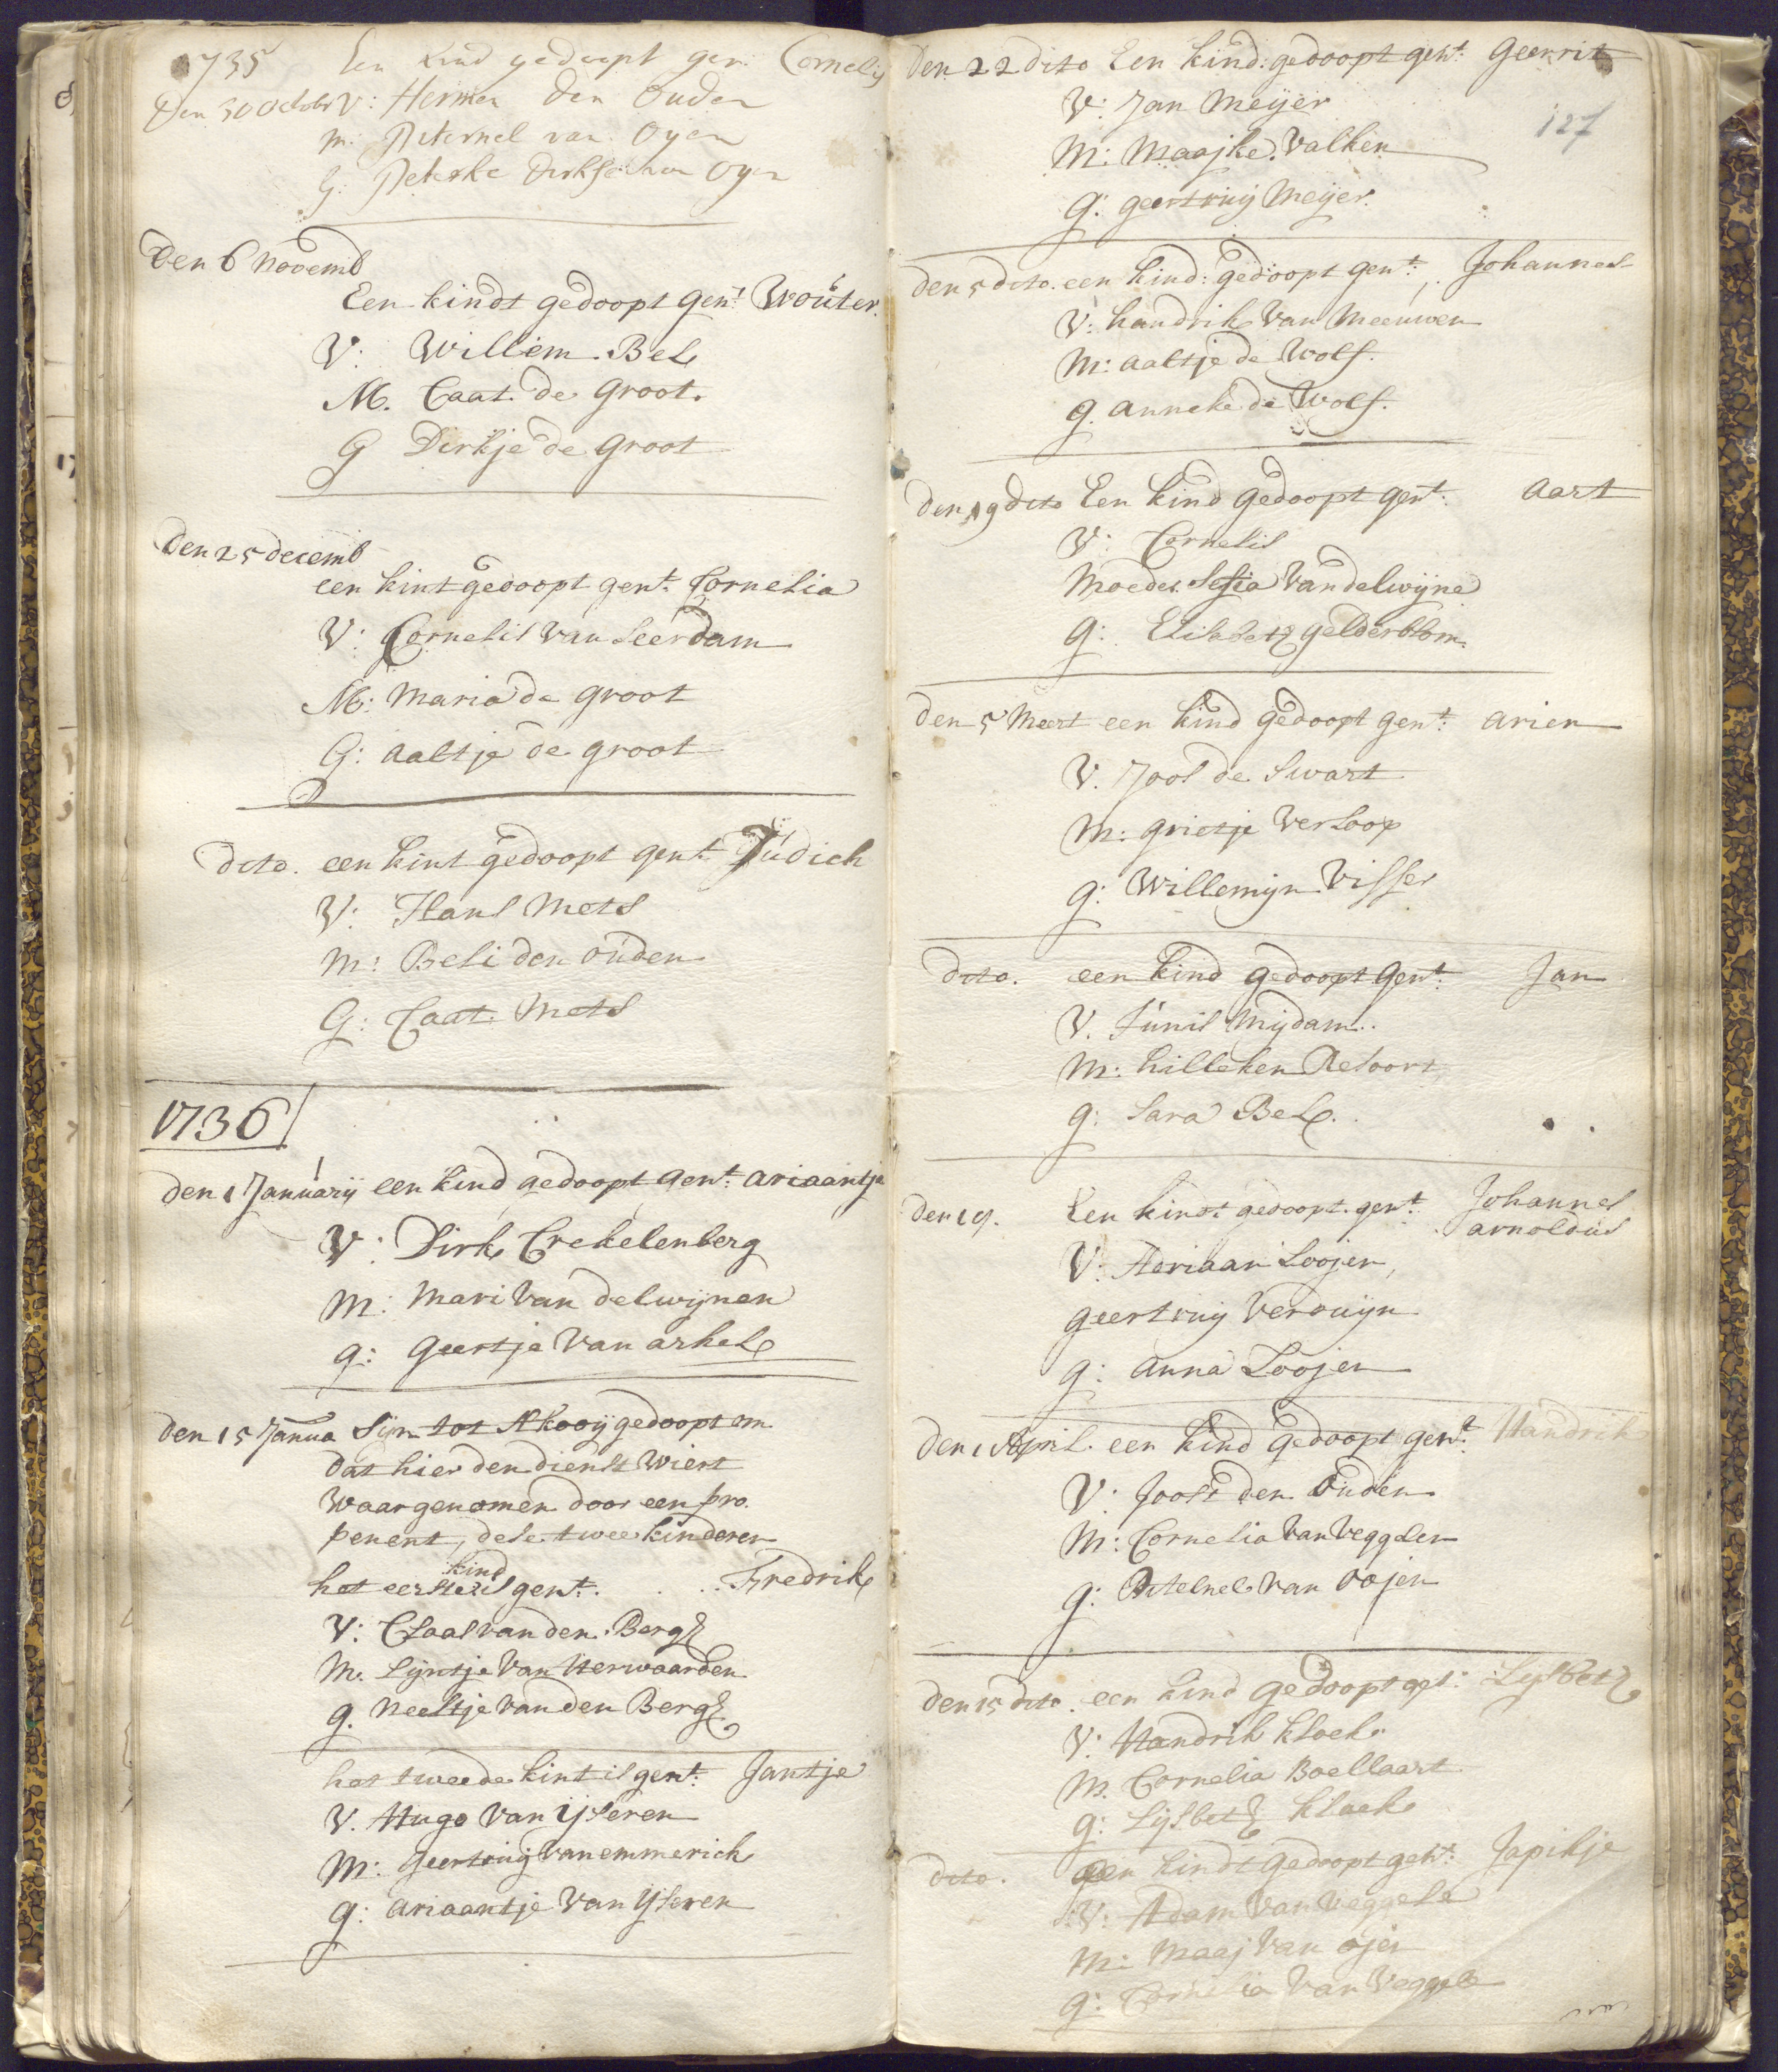 1735 Een kind gedoopt gen: Cornelis
Den 30 Octobr V: Hermen den Ouden
m: Peternel van Oijen
G: Peterke Dirkse van Oijen
Den 6 Novemb
Een kindt gedoopt gent: Wouter.
V: Willem Bel
M. Caat. de Groot.
G Dirkje de groot
Den 25 decemb
een kint gedoopt gent: Cornelia
V: Cornelis van Leerdam
M: Maria de groot
G: aaltje de groot
dito. een kint gedoopt gent Judich
V: Hans Mets
M: Beli den ouden
G: Caat. Mets
1736
den 1 Januarij een kind gedoopt gent: ariaantje
V: Dirk Crekelenberg
M: Mari Van delwijnen
g: geertje Van arkel
den 15 Janua Sijn tot Akooij gedoopt om
dat hier den dienst Wiert
Waargenomen door een pro.
penent, dese twee kinderen
kind
het eerste is gent: . . . Fredrik
V: Claas van den Berg
M. Lijntje Van Herwaarden
g. Neeltje Van den Berg
het tweede kint is gent: Jantje
V. Hugo Van IJseren
M: geertruij van emmerich
g: Ariaantje Van IJseren
Den 22 dito Een kind: gedoopt gent: Geerrit
V: Jan Meijer
127
M: Maajke Valken
g: geertruij Meijer.
den 5 dito. een kind: gedoopt gent: Johannes
V: handrik Van Meeuwen
M: aaltje de Wolf.
g. anneke de Wolf.
den 19 dito Een kind gedoopt gent: aart
V: Cornelis
Moeder Sesia Van delwijne
g: Elisabeth gelderblom
den 5 Meert een kind gedoopt gent: arien
V. Joos de Swart
M: grietje Verloop
g: Willemijn Visser
dito. een kind gedoopt gent: Jan
V. Tunis Mijdam.
M: hilleken Resoort
g: Sara Bel.
den 19. Een kindt gedoopt gent: Johannes
arnoldus
V: Adriaan Loojen,
geertruij Verduijn
g: anna Loojen
den 1 April. een kind gedoopt gent: Handrik
V: Joost den Ouden
M: Cornelia Van Veggelen
g: Peternel Van oojen
den 15 dito. een kind gedoopt get: Lijsbeth
V: Handrik kloek
M. Cornelia Boellaart
g: Lijsbeth kloek
dito. een kindt gedoopt gent: Japikje
V: Adam Van Veggele
M: Maaj Van ojen
g: Cornelia Van Veggele